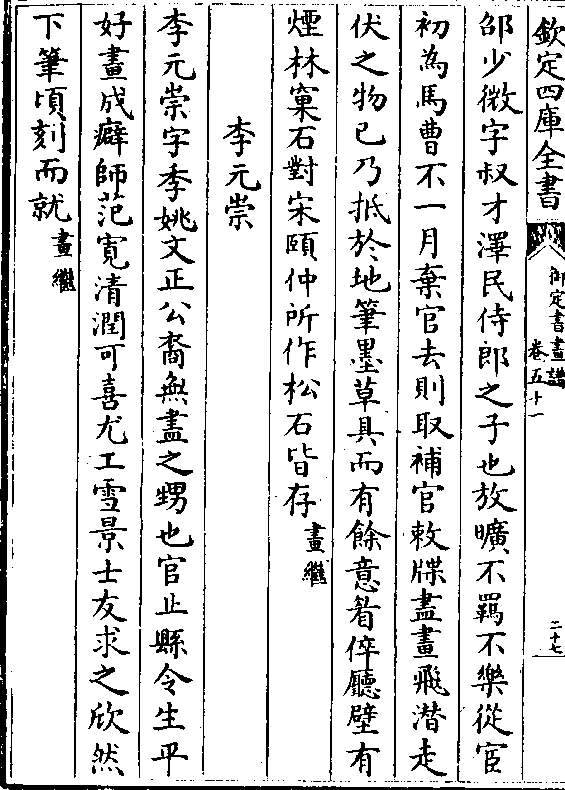 欽定四庫全書
御定書畫譜
卷五十一
二十七
邵少微字叔才澤民侍郎之子也放曠不羈不樂從宦
初為馬曹不一月棄官去則取補官敕牒盡畫飛潛走
伏之物已乃抵於地筆墨草具而有餘意眉倅廳壁有
煙林窠石對宋頤仲所作松石皆存畫繼
李元崇
李元崇字季姚文正公裔無盡之甥也官止縣令生平
好畫成癖師范寛清潤可喜尤工雪景士友求之欣然
下筆頃刻而就畫繼